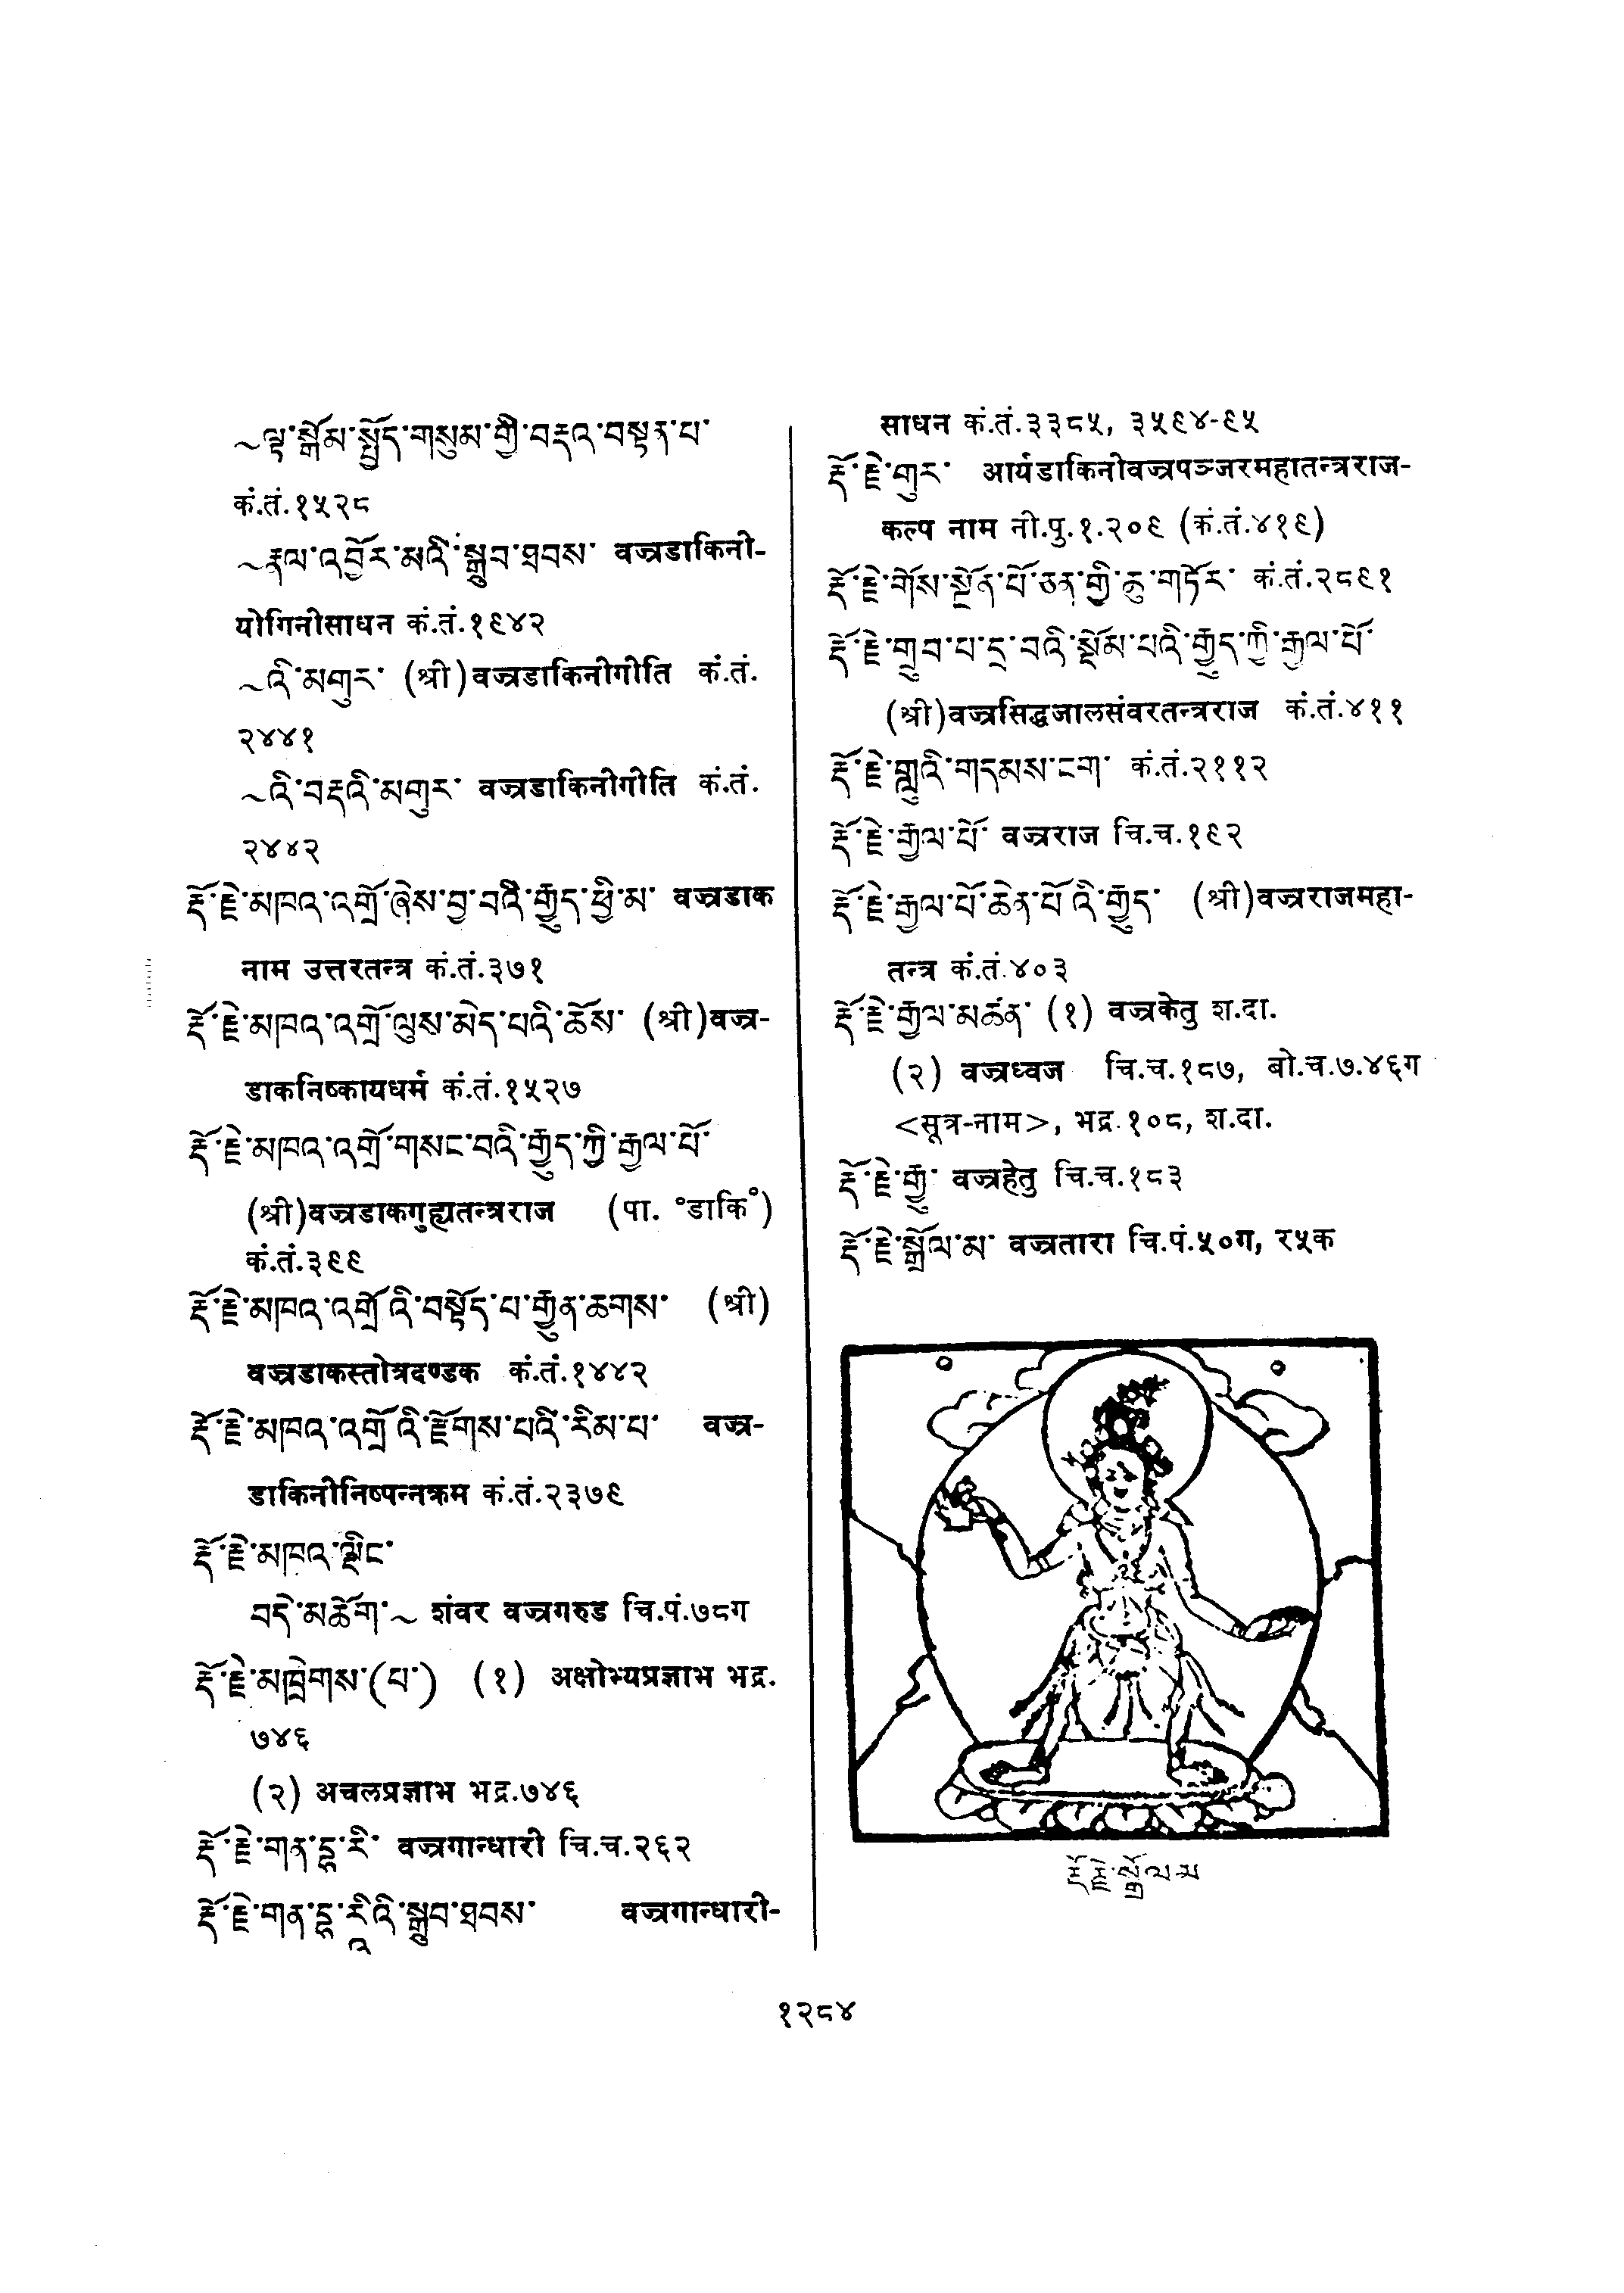 ~ལྟ་སྒོམ་སྤྱོད་གསུམ་གྱི་བརྡའ་བསྟན་པ་
कं.तं.१५२८
~རྣལ་འབྱོར་མའི་སྒྲུབ་ཐབས་ वज्रडाकिनी-
योगिनीसाधन कं.तं.१९४२
~འི་མགུར་ (श्री)वज्रडाकिनीगीति कं.तं.
२४४१
~འི་བརྡའི་མགུར་ वज्रडाकिनीगीति कं.तं.
२४४२
རྡོ་རྗེ་མཁའ་འགྲོ་ཞེས་བྱ་བའི་རྒྱུད་ཕྱི་མ་ वज्रडाक
नाम उत्तरतन्त्र कं.तं.३७१
རྡོ་རྗེ་མཁའ་འགྲོ་ལུས་མེད་པའི་ཆོས་ (श्री)वज्र-
डाकनिष्कायधर्म कं.तं.१५२७
རྡོ་རྗེ་མཁའ་འགྲོ་གསང་བའི་རྒྱུད་ཀྱི་རྒྱལ་པོ་
(श्री)वज्रडाकगुह्यतन्त्रराज (पा. °डाकि°)
कं.तं.३९९
རྡོ་རྗེ་མཁའ་འགྲོ་འི་བསྟོད་པ་རྒྱུན་ཆགས་ (श्री)
वज्रडाकस्तोत्रदण्डक कं.तं.१४४२
རྡོ་རྗེ་མཁའ་འགྲོ་འི་རྫོགས་པའི་རིམ་པ་ वज्र-
डाकिनीनिष्पन्नक्रम कं.तं.२३७९
རྡོ་རྗེ་མཁའ་ལྡིང་
བདེ་མཆོག་~ शंवर वज्रगरुड चि.पं.७८ग
རྡོ་རྗེ་མཁྲེགས་(པ་) (१) अक्षोभ्यप्रज्ञाभ भद्र.
७४६
(२) अचलप्रज्ञाभ भद्र.७४६
རྡོ་རྗེ་གན་དྷ་རི་ वज्रगान्धारी चि.च.२६२
རྡོ་རྗེ་གན་དྷ་རཱིའི་སྒྲུབ་ཐབས་ वज्रगान्धारी-
साधन कं.तं.३३८५, ३५९४-९५
རྡོ་རྗེ་གུར་ आर्यडाकिनीवज्रपञ्जरमहातन्त्रराज-
कल्प नाम नी.पु.१.२०९ (कं.तं.४१९)
རྡོ་རྗེ་གོས་སྔོན་པོ་ཅན་གྱི་ཆུ་གཏོར་ कं.तं.२८९१
རྡོ་རྗེ་གྲུབ་པ་དྲ་བའི་སྡོམ་པའི་རྒྱུད་ཀྱི་རྒྱལ་པོ་
(श्री)वज्रसिद्धजालसंवरतन्त्रराज कं.तं.४११
རྡོ་རྗེ་གླུའི་གདམས་ངག་ कं.तं.२११२
རྡོ་རྗེ་རྒྱལ་པོ་ वज्रराज चि.च.१९२
རྡོ་རྗེ་རྒྱལ་པོ་ཆེན་པོ་འི་རྒྱུད་ (श्री)वज्रराजमहा-
तन्त्र कं.तं.४०३
རྡོ་རྗེ་རྒྱལ་མཚན་ (१) वज्रकेतु श.दा.
(२) वज्रध्वज चि.च.१८७, बो.च.७.४६ग
<सूत्र-नाम>, भद्र.१०८, श.दा.
རྡོ་རྗེ་རྒྱུ་ वज्रहेतु चि.च.१८३
རྡོ་རྗེ་སྒྲོལ་མ་ वज्रतारा चि.पं.५०ग, र५क
རྡོ་རྗེ་སྒྲོལ་མ
१२८४